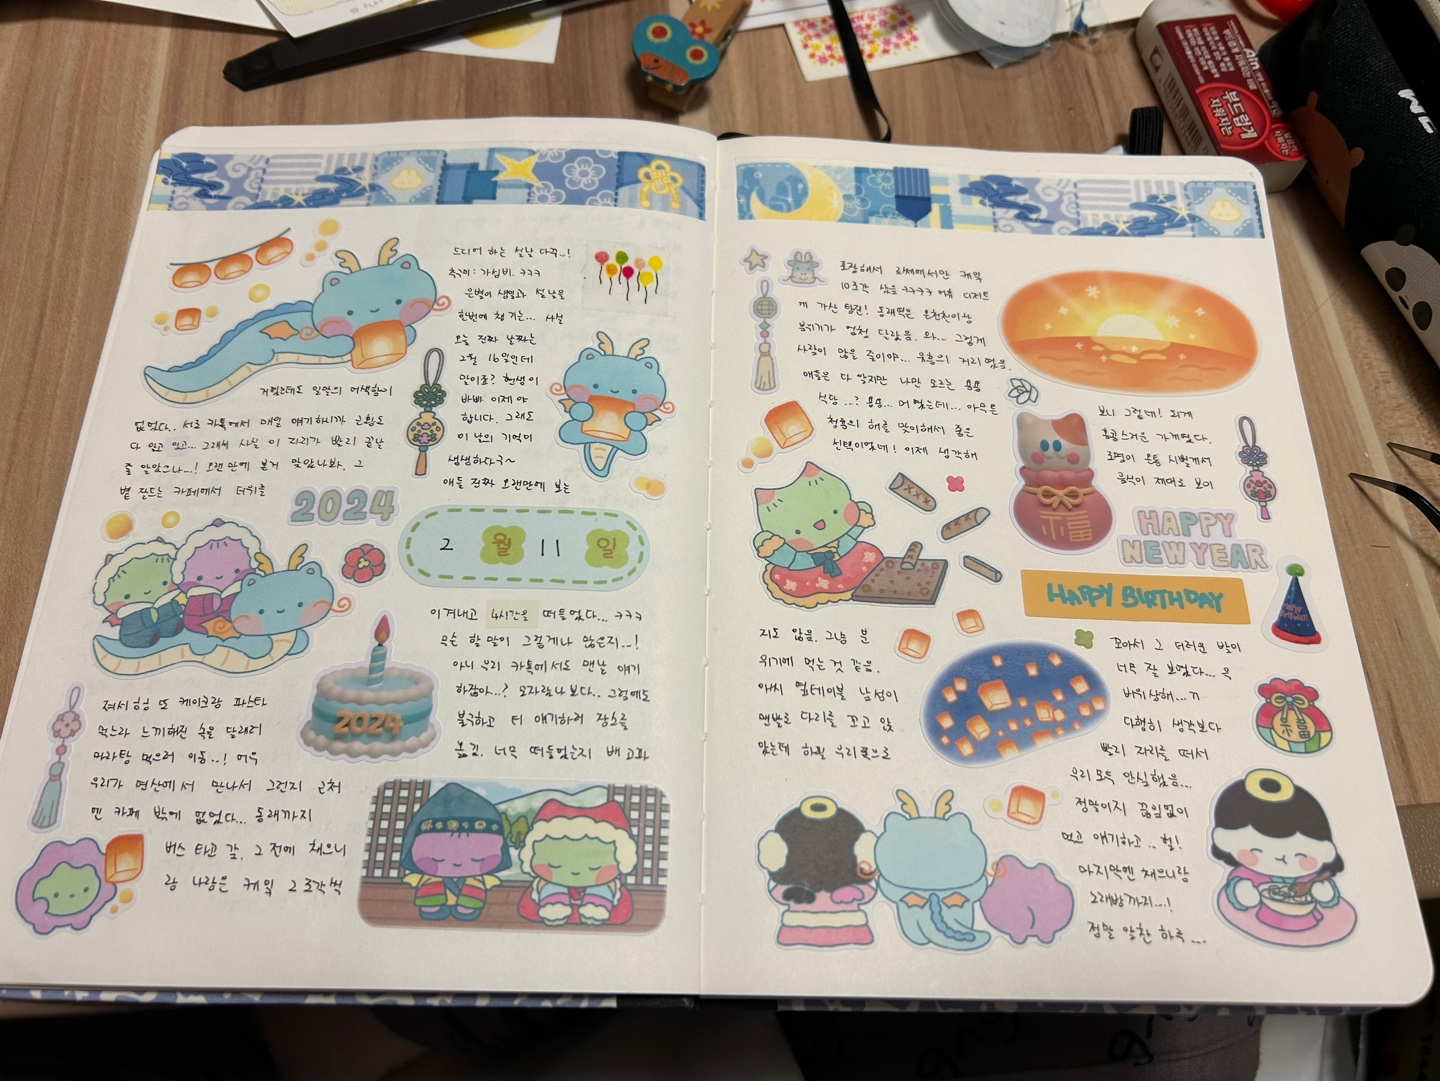 드디어 하는 설날 다꾸..!
축구미: 가성비. ㅋㅋㅋ
은별이 생일과 설날을
한번에 챙기는... 사실
오늘 진짜 날짜는
2월 16일인데
말이죠? 현생이
바빠 이제야
합니다. 그래도
이 날의 기억이
생생하다구~
애들 진짜 오랜만에 보는
거였는데도 일말의 어색함이
없었다.. 서로 카톡에서 매일 얘기하니까 근황도
다 알고 있고... 그래서 사실 이 자리가 빨리 끝날
줄 알았으나...! 오랜만에 보기 말았나봐. 그
볕 잘드는 카페에서 더위를
2024
2 월 11 일
이겨내고 4시간을 떠들었다... ㅋㅋㅋ
무슨 할 말이 그렇게나 많은지...!
아니 우리 카톡에서도 맨날 얘기
하잖아...? 모자랐나보다.. 그럼에도
불구하고 더 얘기하러 장소를
옮김. 너무 떠들었는지 배고파
2024
져서 헝헝 또 케이크랑 파스타
먹느라 느끼해진 속을 달래러
마라탕 먹으러 이동..! 어우
우리가 연산에서 만나서 그런지 근처
엔 카페 밖에 없었다... 동래까지
버스 타고 감. 그 전에 채으니
랑 나랑은 케잌 2조각씩
포장해서 2찌에서만 케잌
10조각 샀음 ㅋㅋㅋㅋ 여튼 디저트
에 가산 탕진! 동래역은 온천천이랑
분위기가 엄청 달랐음. 와... 그렇게
사람이 많을 줄이야... 유흥의 거리였음.
애들은 다 알지만 나만 모르는 용용
식당...? 용용... 머였는데... 아무튼
청룡의 해를 맞이해서 좋은
선택이었네! 이제 생각해
보니 그렇네! 되게
홍콩스러운 가게였다.
조명이 온통 시뻘게서
음식이 제대로 보이
福
HAPPY
NEW YEAR
HAPPY BIRTHDAY
지도 않음. 그냥 분
위기에 먹는 것 같음.
아씨 옆테이블 남성이
맨발로 다리를 꼬고 앉
았는데 하필 우리 쪽으로
꼬아서 그 더러운 발이
너무 잘 보였다... 윽
비위상해... ㄲ
다행히 생각보다
빨리 자리를 떠서
우리 모두 안심했음...
정말이지 끊임없이
먹고 얘기하고.. 헐!
마지막엔 채으니랑
노래방까지...!
정말 알찬 하루...
Aim
부드럽게
지워지는